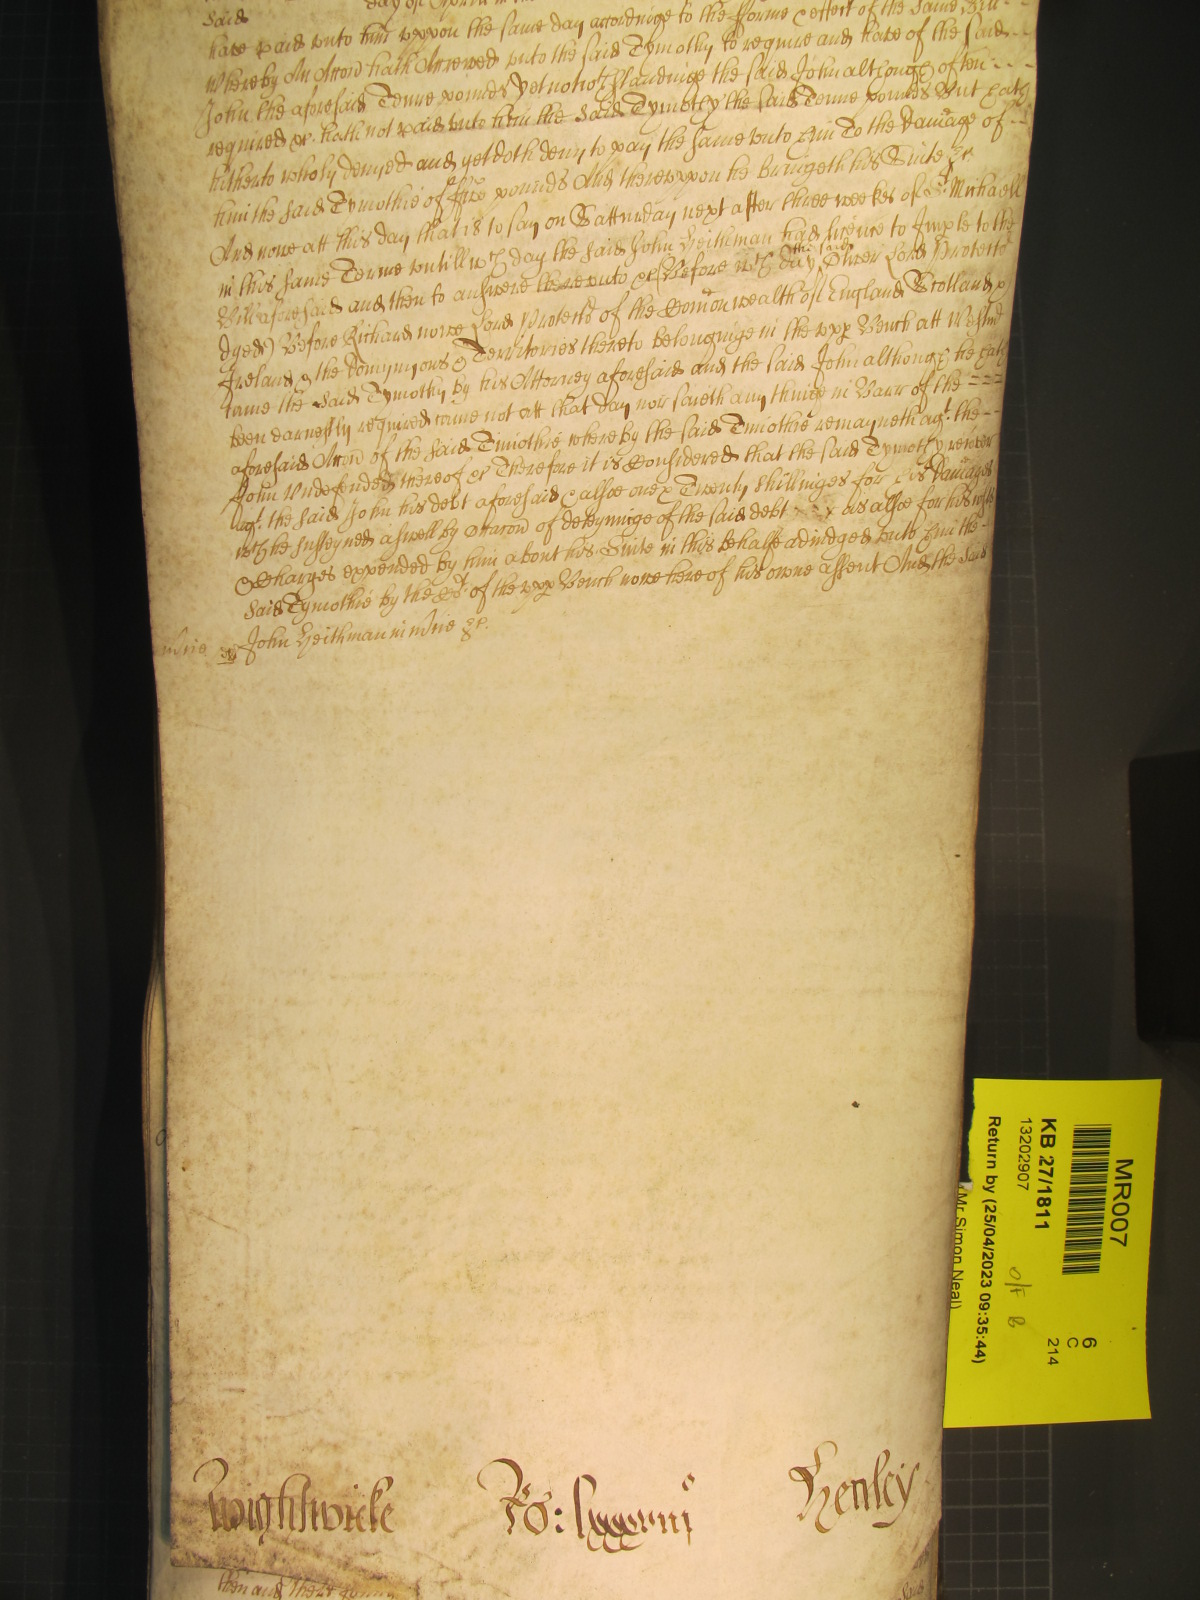 day of Aprill in the
Said
have paid unto him uppon the same day accordinge to the forme & effect of the same Bill
Whereby An Accon hath Accrewed unto the said Tymothy to require and have of the said
John the aforesaid Tenne pounds Yet notwthstandinge the said John although often
required &c. hath not paid unto him the Said Tymothy the said Tenne pounds But hath
hitherto wholy denyed and yet doth deny to pay the same unto him To the Damage of
him the said Tymothie of ffive pounds And thereuppon he bringeth his Suite &c.
And nowe att this day that is to say on Satturday next after three weekes of St. Michaell
in this same Terme untill wch day the said John Heithman had licence to Imple to the
Bill aforesaid and then to answere thereunto &c (Before wch day the said Oliver Lord Protector
dyed) Before Richard nowe Lord Protector of the Comonwealth of England Scotland &
Ireland & the domynyons & Territories thereto belonginge in the upp Bench att Westmr
came the said Tymothy by his Attorney aforesaid and the said John although he hath
been earnestly required came not att that day nor saieth any thinge in Barr of the
aforesaid Accon of the said Timothie whereby the said Timothie remayneth agt. the
John Undefended thereof &c Therefore it is Considered that the said Tymothy recover
agt. the said John his debt aforesaid & alsoe one & Twenty shillinges for his damages
wch he susteyned aswell by occacon of deteyninge of the said debt as alsoe for his costs
& Charges expended by him about his Suite in this behalfe adiudged unto him the
said Tymothie by the Ct. of the upp Bench nowe here of his owne assent And the said
John Heithman in mcie &c.
mcie
Wightwicke Ro: Henley
then and there
MR007
6
C
214
KB 27/1811
13202907
O/F B
Return by (25/04/2023 09:35:44)
(Mr Simon Neal)